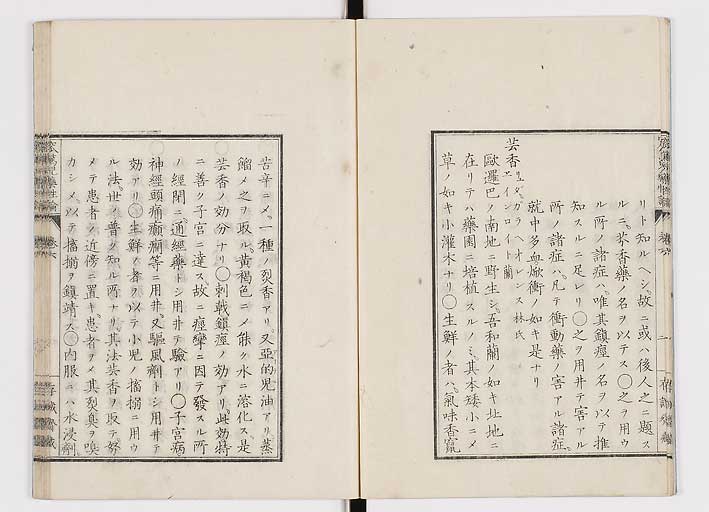 リト知ルヘシ。故ニ或ハ後人之ニ題ス
ルニ。芥香藥ノ名ヲ以テス○之ヲ用ウ
ル所ノ諸症ハ。唯其鎮痙ノ名ヲ以テ推
知スルニ足レリ○之ヲ用井テ害アル
所ノ諸症ハ。凡テ衝動藥ノ害アル諸症。
就中多血焮衝ノ如キ是ナリ
芸香
リュダ。ガラヘオレンス 林氏
ウエインロイト 蘭
歐邏巴ノ南地ニ野生シ。吾和蘭ノ如キ北地ニ
在リテハ藥圃ニ培植スルノミ。其本矮小ニメ
草ノ如キ小灌木ナリ○生鮮ノ者ハ。氣味香竄
苦辛ニメ。一種ノ烈香アリ。又亞的児油アリ蒸
餾メ之ヲ取ル。黄褐色ニメ能ク水ニ溶化ス是
芸香ノ効分ナリ○刺戟鎮痙ノ効アリ此効特
ニ善ク子宮ニ達ス故ニ痙攣ニ因テ發スル所
ノ經閉ニ。通經藥トシ用井テ驗アリ○子宮病
神經頭痛癲癇等ニ用井。又驅風劑トシ用井テ
効アリ○生鮮ノ者ヲ以テ小児ノ搐搦ニ用ウ
ル法。世ノ普ク知ル所ナリ。其法芸香ヲ取テ努
メテ患者ノ近傍ニ置キ。患者ヲメ其烈臭ヲ嗅
カシメ。以テ搐搦ヲ鎮靖ス○内服ニハ水浸劑